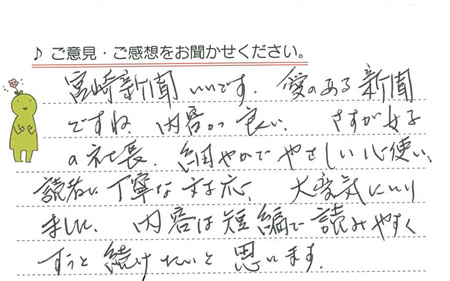 ♪ ご意見・ご感想をお聞かせください。
宮崎新聞いいです。愛のある新聞
ですね。内容が良い。さすが女子
の社長。細やかでやさしい心使い、
読者に丁寧な対応。大変気にいり
ました。内容は短編で読みやすく
ずっと続けたいと思います。